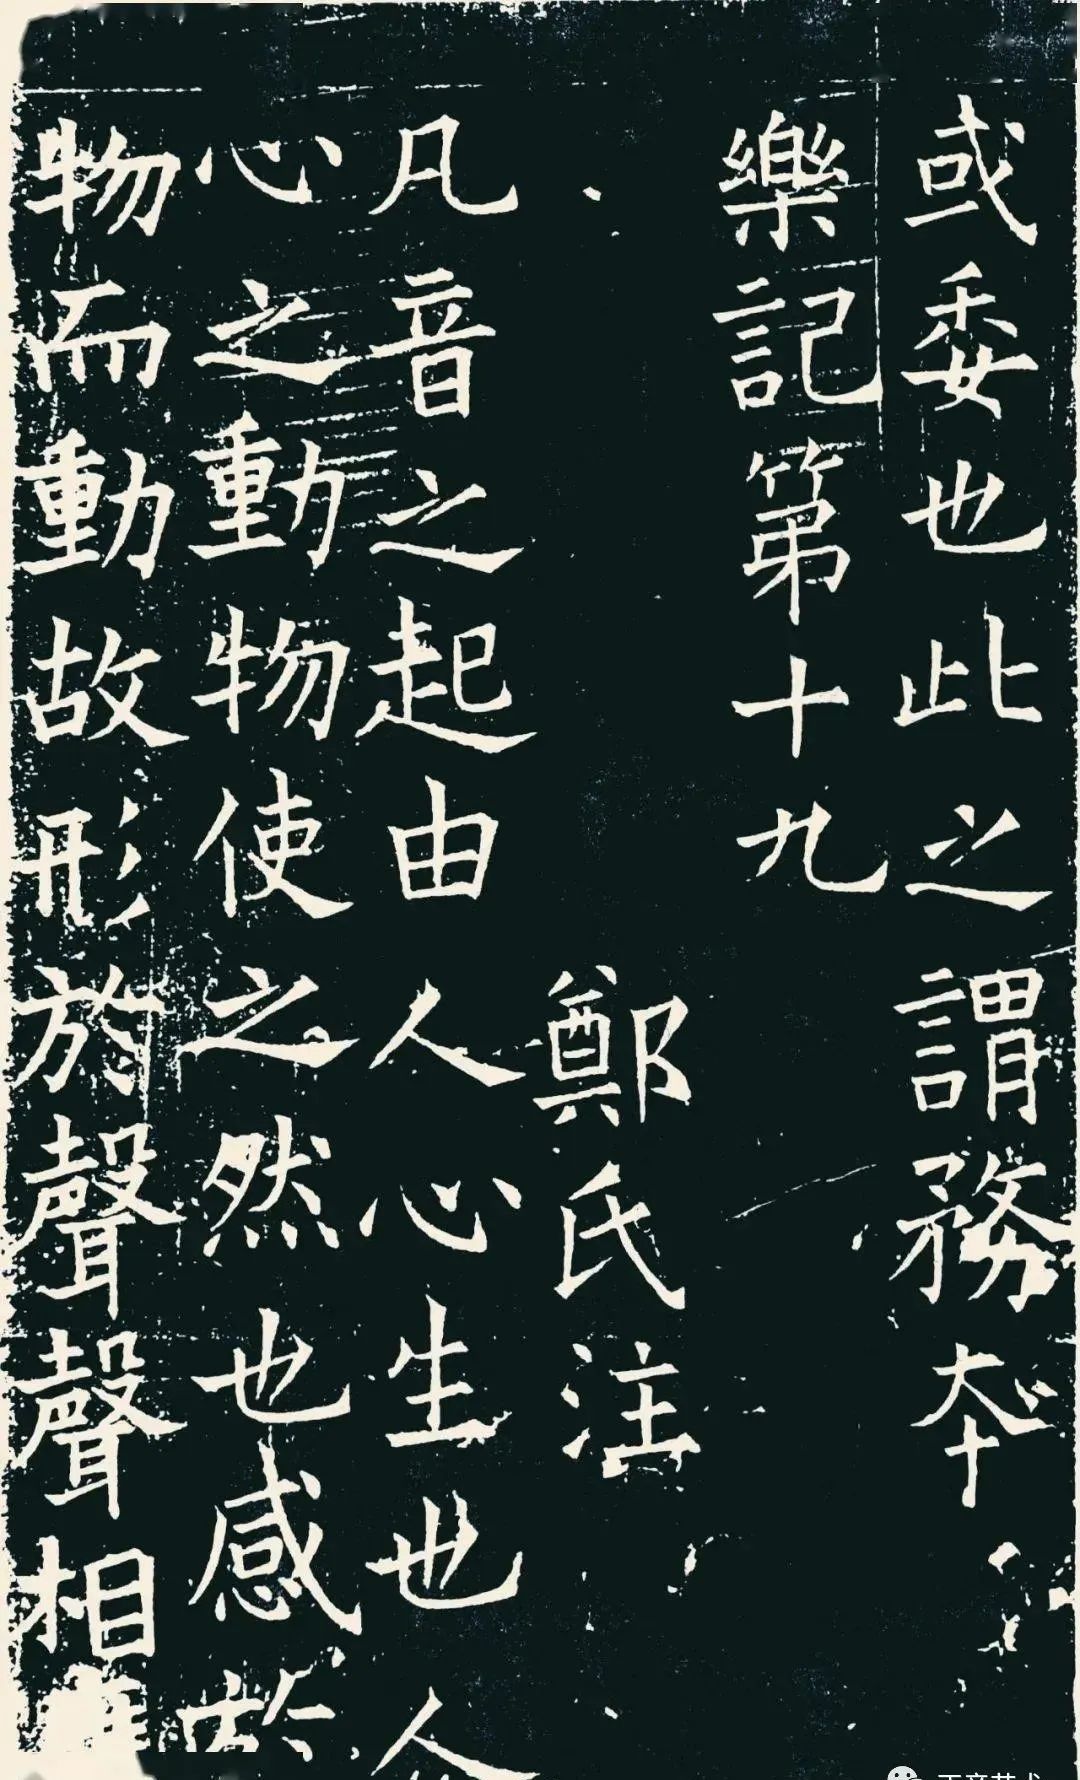 或委也此之謂務本
樂記第十九
鄭氏注
凡音之起由人心生也人
心之動物使之然也感於
物而動故形於聲聲相